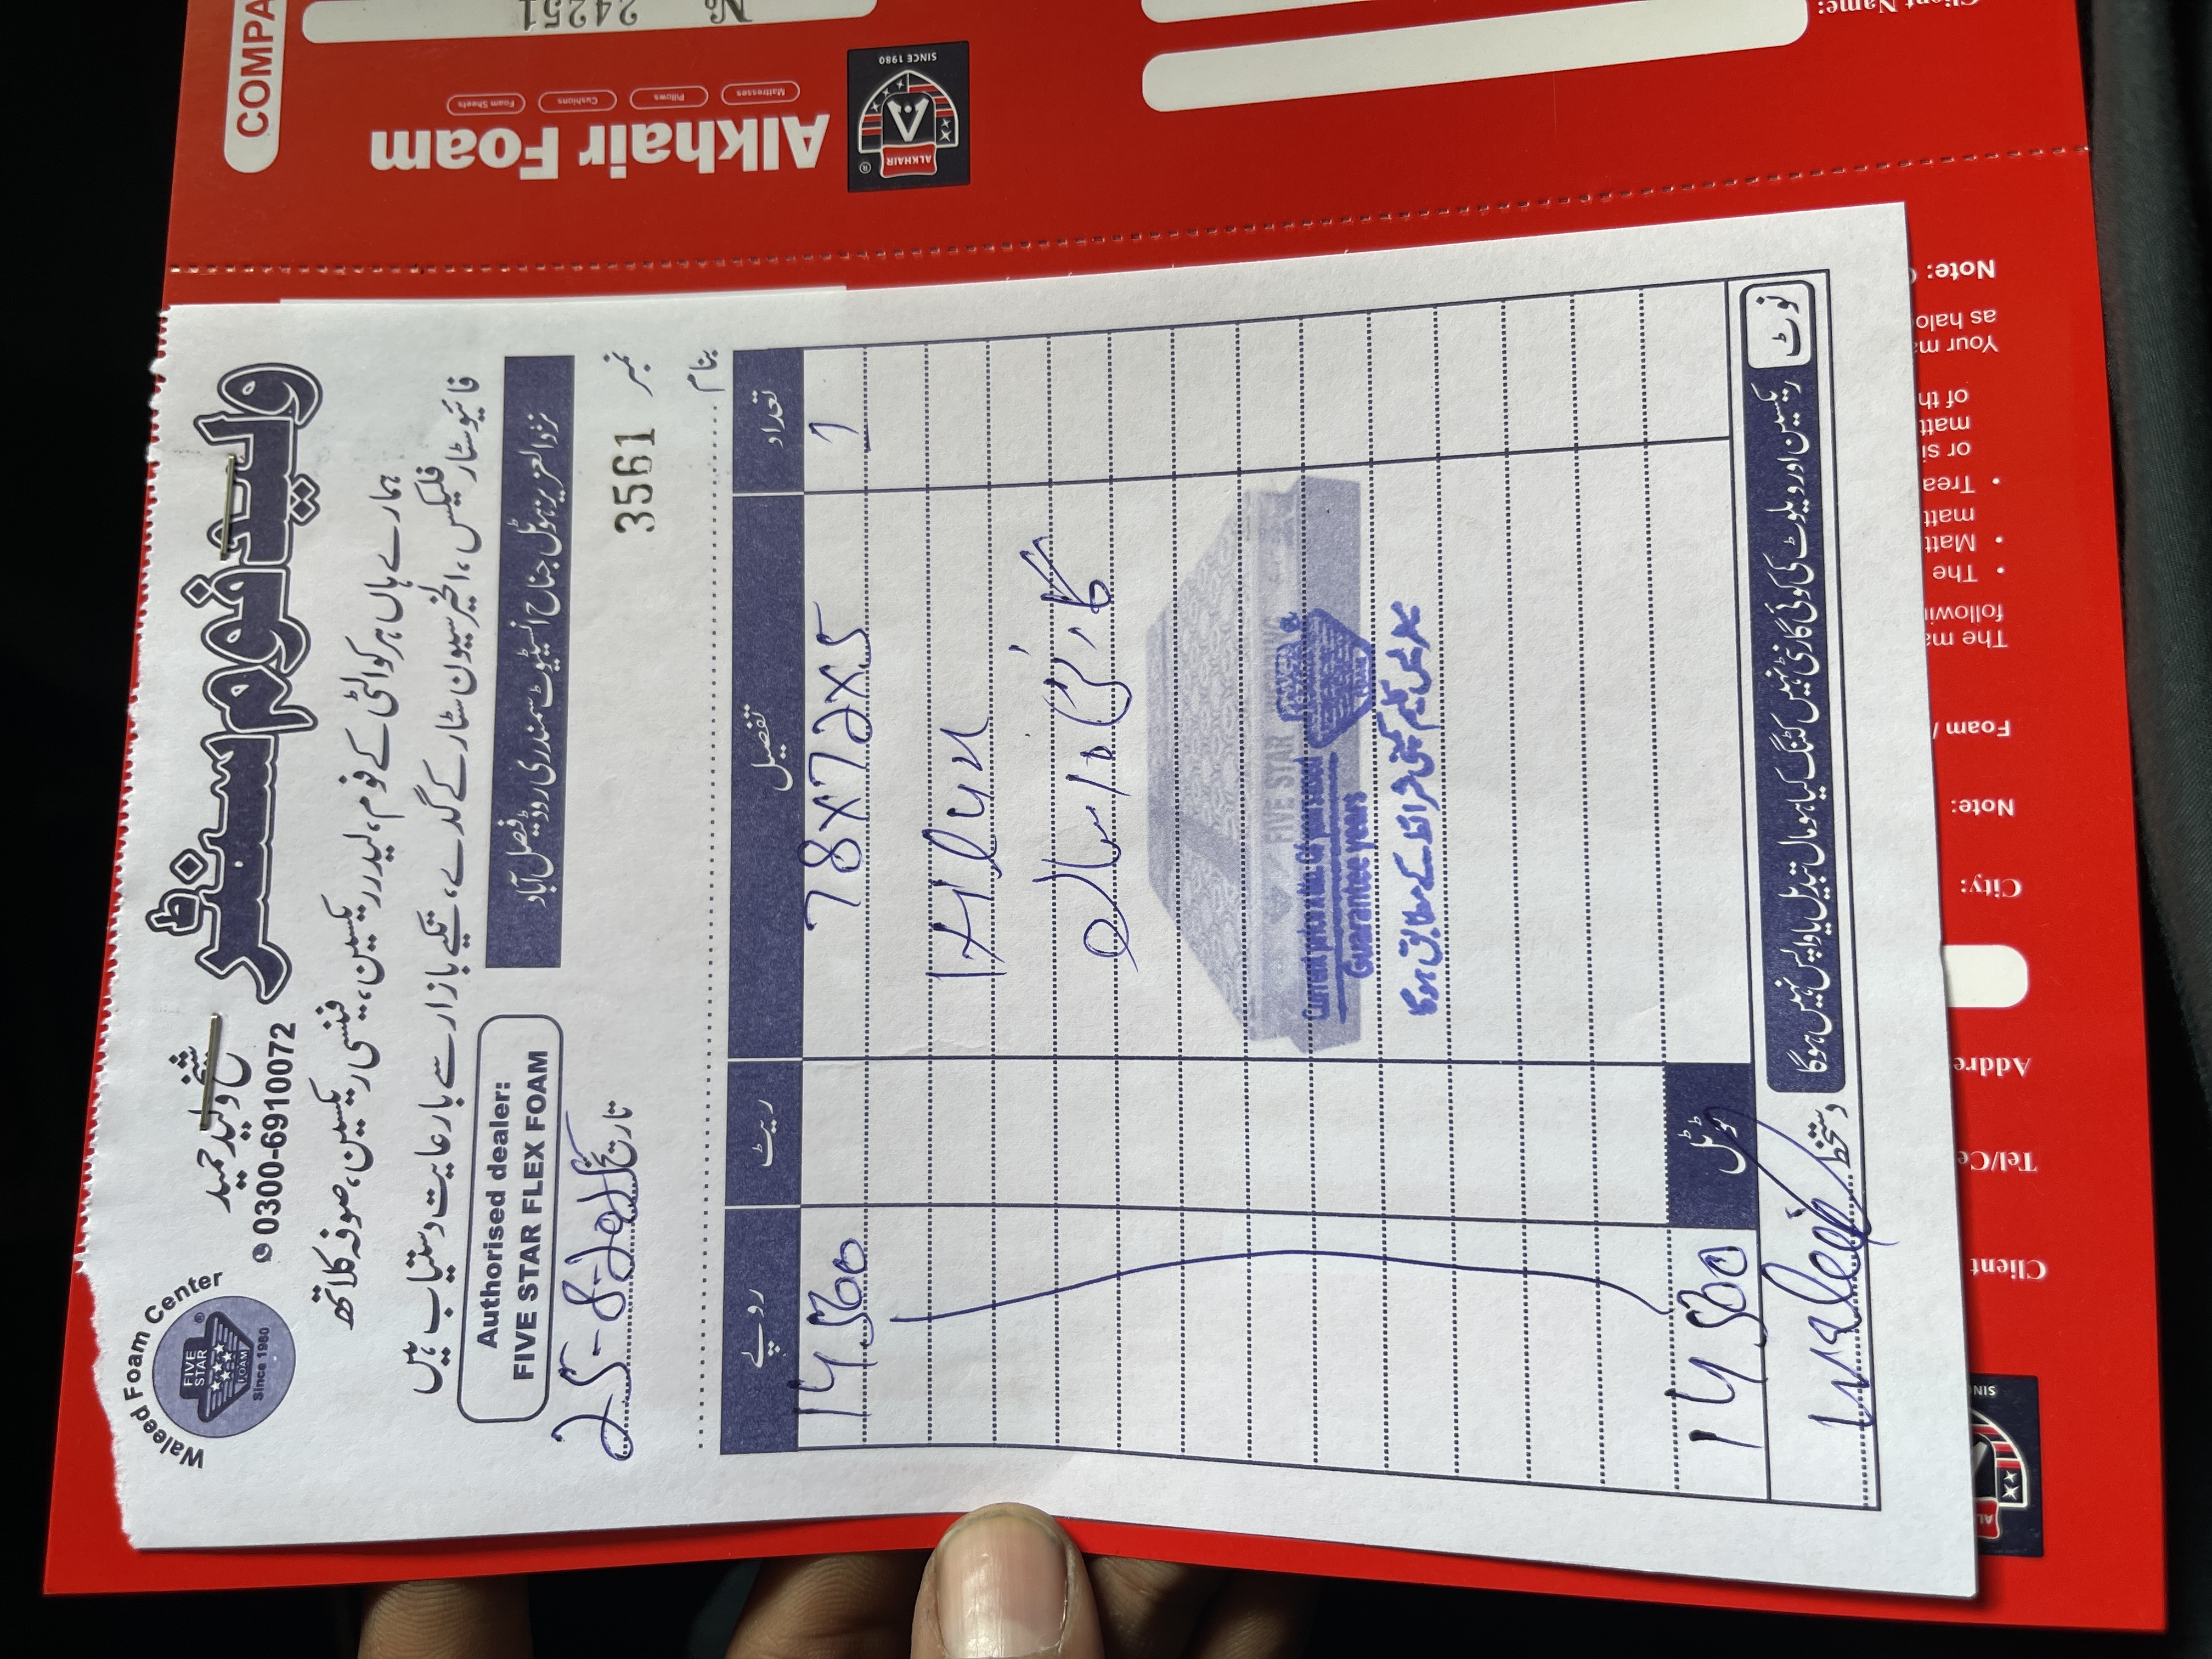 ولید فوم سنٹر
شیخ ولید حمید
0300-6910072
Waleed Foam Center
FIVE STAR FOAM
Since 1980
ہمارے ہاں ہر کوالٹی کے فوم، لیدر ریکسین، فینسی ریکسین، صوفہ کلاتھ
فائیو سٹار فلیکس، الخیر سیون سٹار کے گدے، تکیے بازار سے بارعایت دستیاب ہیں
نزد العزیز ہوٹل جناح انسٹیٹیوٹ سمندری روڈ فیصل آباد
Authorised dealer:
FIVE STAR FLEX FOAM
نمبر 3561
تاریخ 25-8-2025
بنام
تعداد تفصیل ریٹ روپے
1 78x72x5 14500
گارنٹی 10 سال
FIVE STAR
Guarantee years
کلیم کمپنی شرائط کے مطابق ہوگا
ٹوٹل 14500
نوٹ
ریکسین اور ویلوٹ کی کوئی گارنٹی نہیں کٹنگ کیا ہوا مال تبدیل یا واپس نہیں ہوگا
دستخط Waleed
COMPA
No 24251
Alkhair Foam
Mattresses Pillows Cushions Foam Sheets
ALKHAIR
SINCE 1980
Client Name:
Note:
as halo
Your ma
of th
matt
or si
• Trea
matt
• Matt
• The
followi
The ma
Foam /
Note:
City:
Addre
Tel/Ce
Client